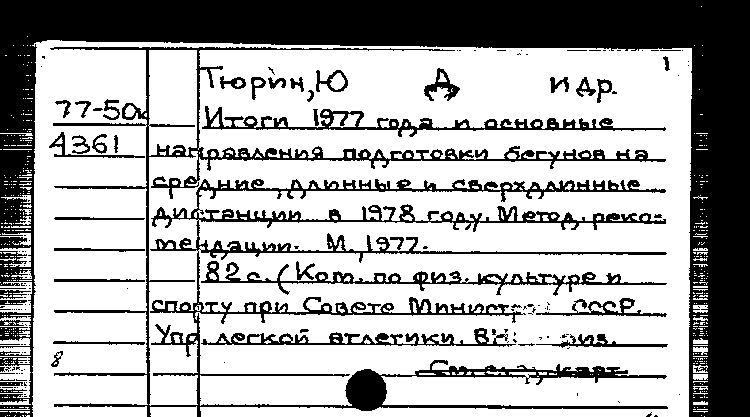 1
Тюрин, Ю Д и др.
77-50к Итоги 1977 года и основные
4361 направления подготовки бегунов на
средние, длинные и сверхдлинные
дистанции в 1978 году. Метод. реко-
мендации. М., 1977.
82 с. (Ком. по физ. культуре и
спорту при Совете Министров СССР.
Упр. легкой атлетики. физ.
8
См. след. карт.